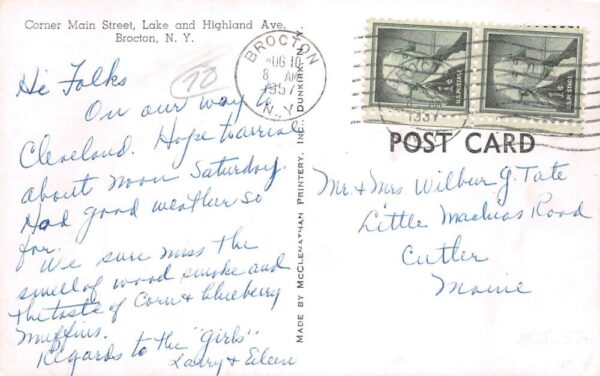 Corner Main Street, Lake and Highland Ave.
Brocton, N. Y.
Hi Folks
On our way to
Cleveland. Hope to arrive
about noon Saturday.
Had good weather so
far.
We sure miss the
smell of wood smoke and
the taste of Corn & blueberry
muffins.
Regards to the "girls".
Larry & Eileen
70
MADE BY MCCLENATHAN PRINTERY, INC., DUNKIRK, N.Y.
BROCTON
AUG 10
8 AM
1957
N.Y.
U.S. POSTAGE
U.S. POSTAGE
POST CARD
Mr & Mrs Wilbur G. Tate
Little Machias Road
Cutler
Maine